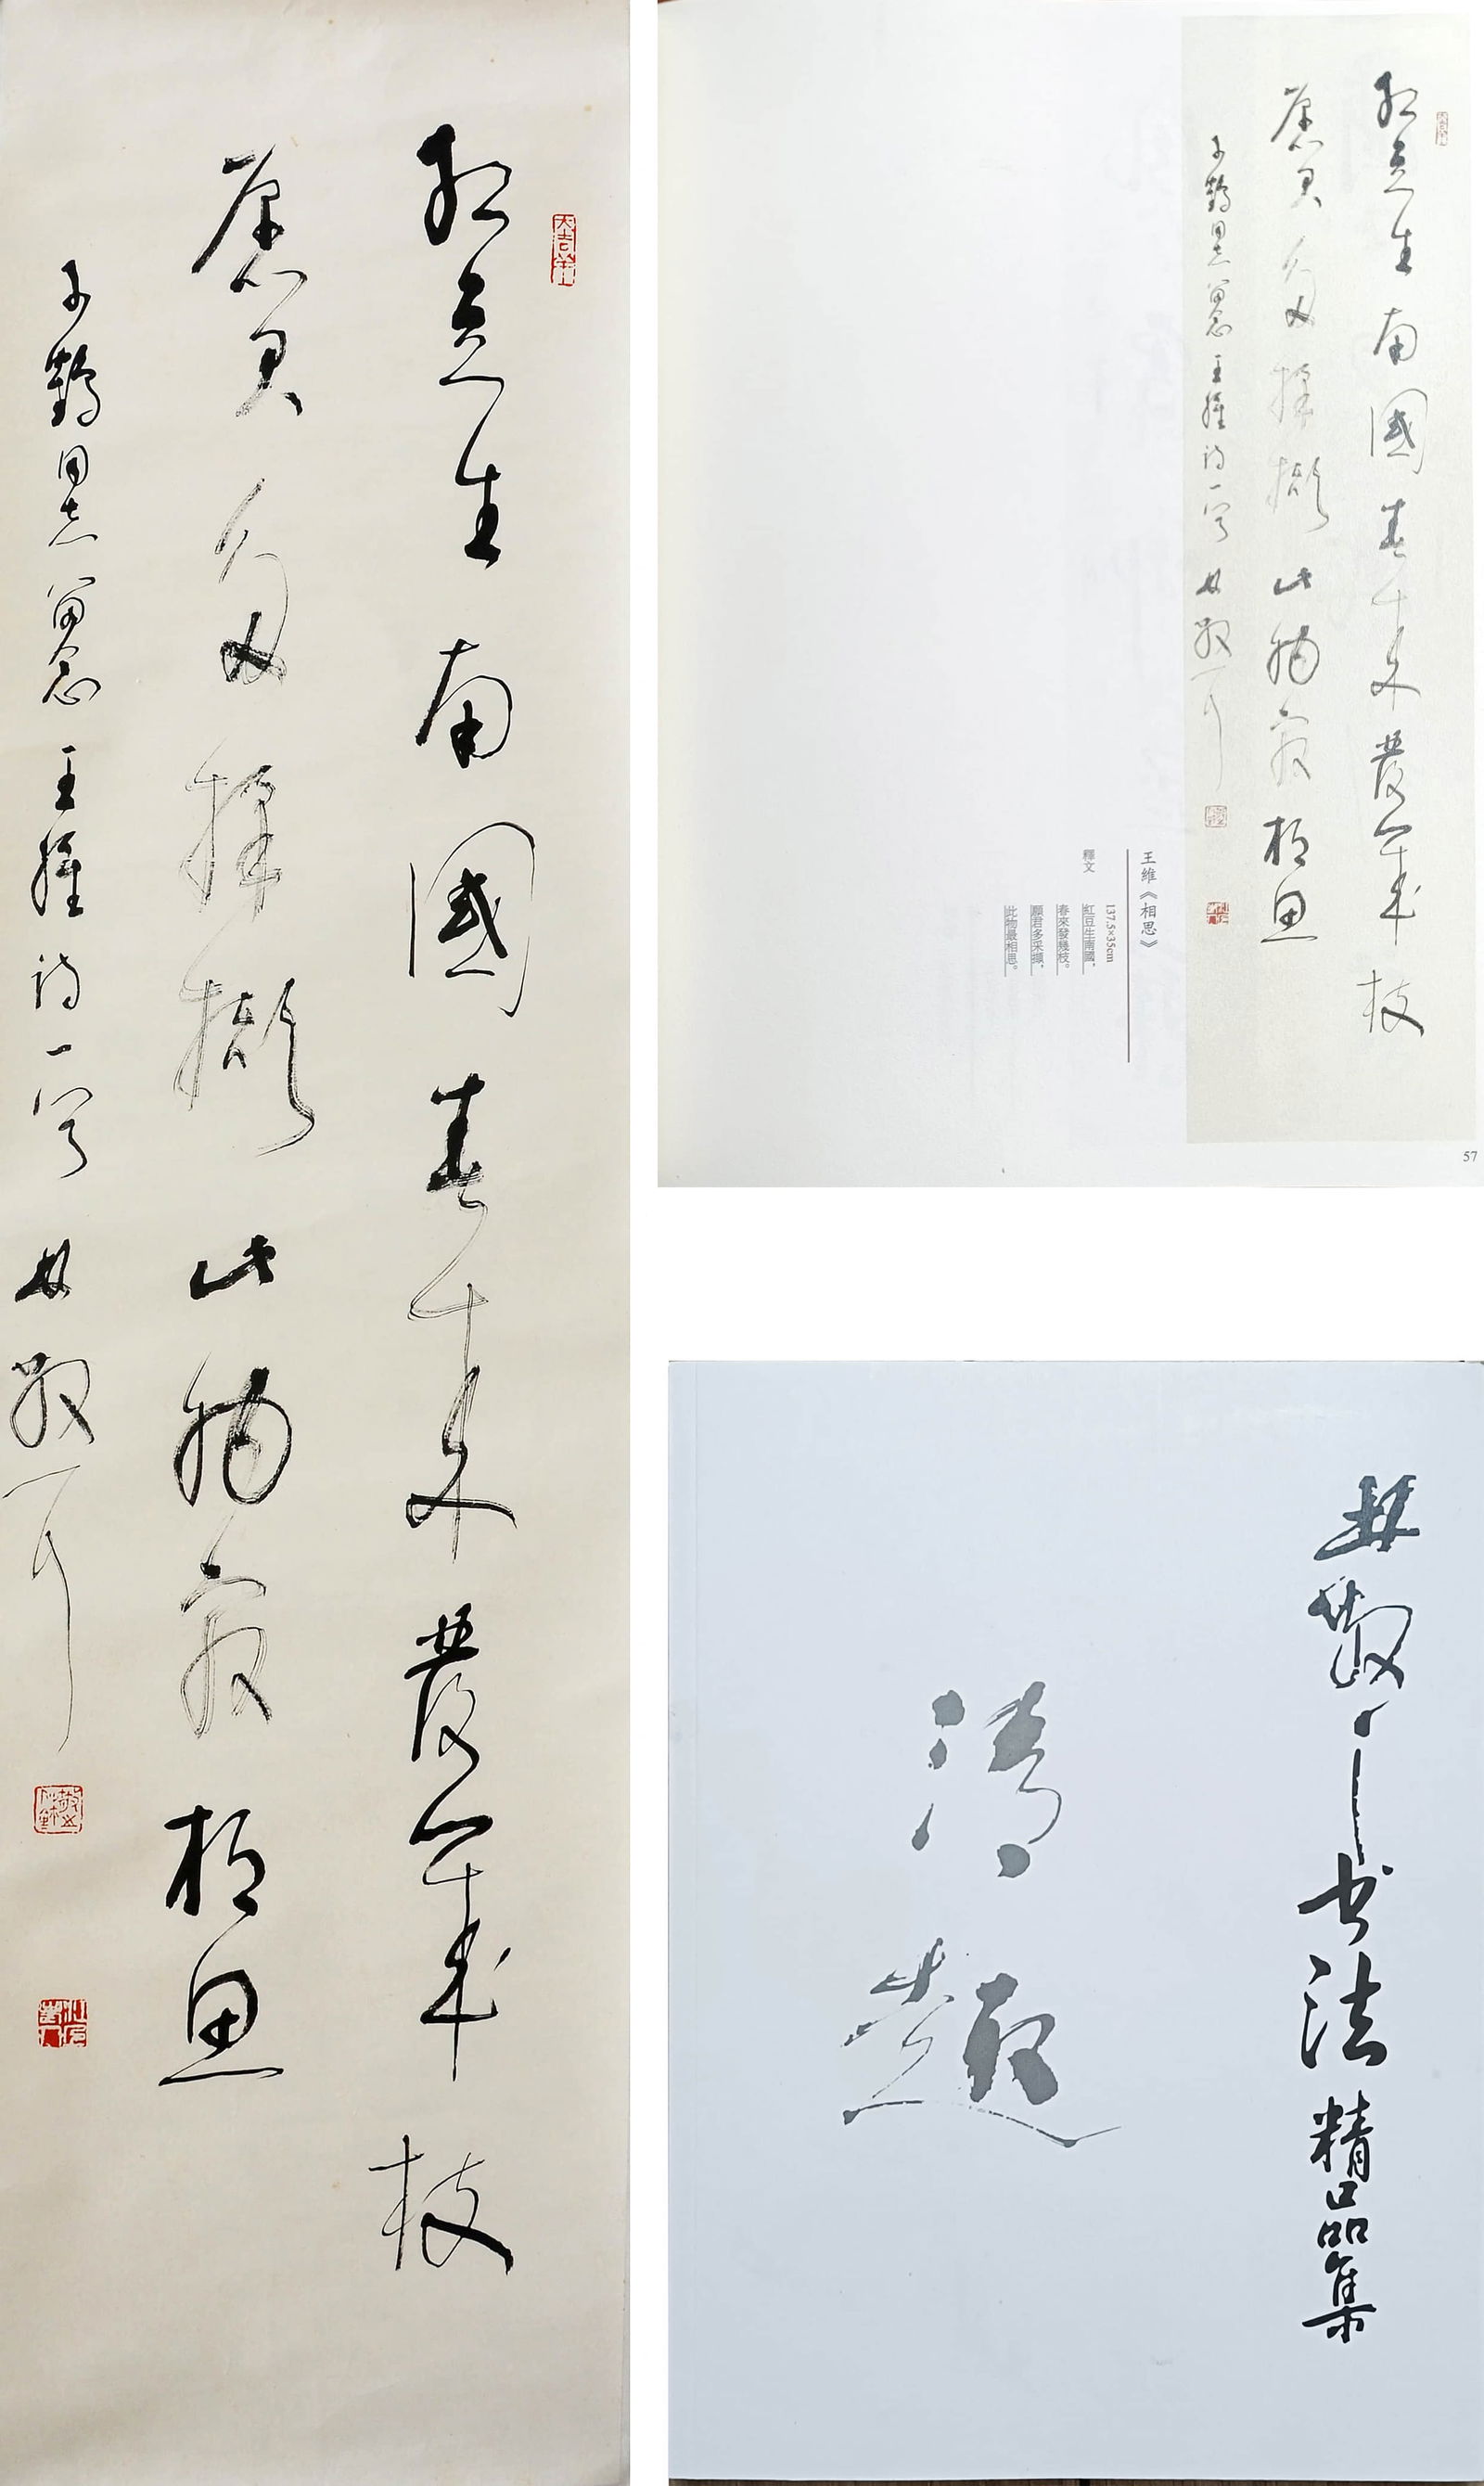 紅豆生南國春來發幾枝
願君多採擷此物最相思
子鶴同志留念 王維詩一 林散耳
大吉羊
紅豆生南國春來發幾枝
願君多採擷此物最相思
子鶴同志留念 王維詩一 林散耳
王維《相思》
137.5×35cm
釋文
紅豆生南國，
春來發幾枝。
願君多采擷，
此物最相思。
57
林散之书法精品集
清趣